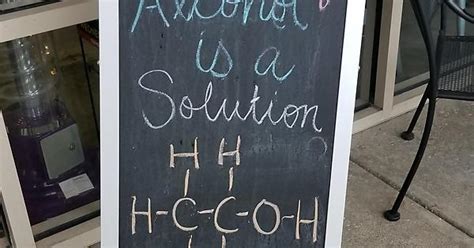 Alcohol
is a
Solution
H H
H-C-C-O-H